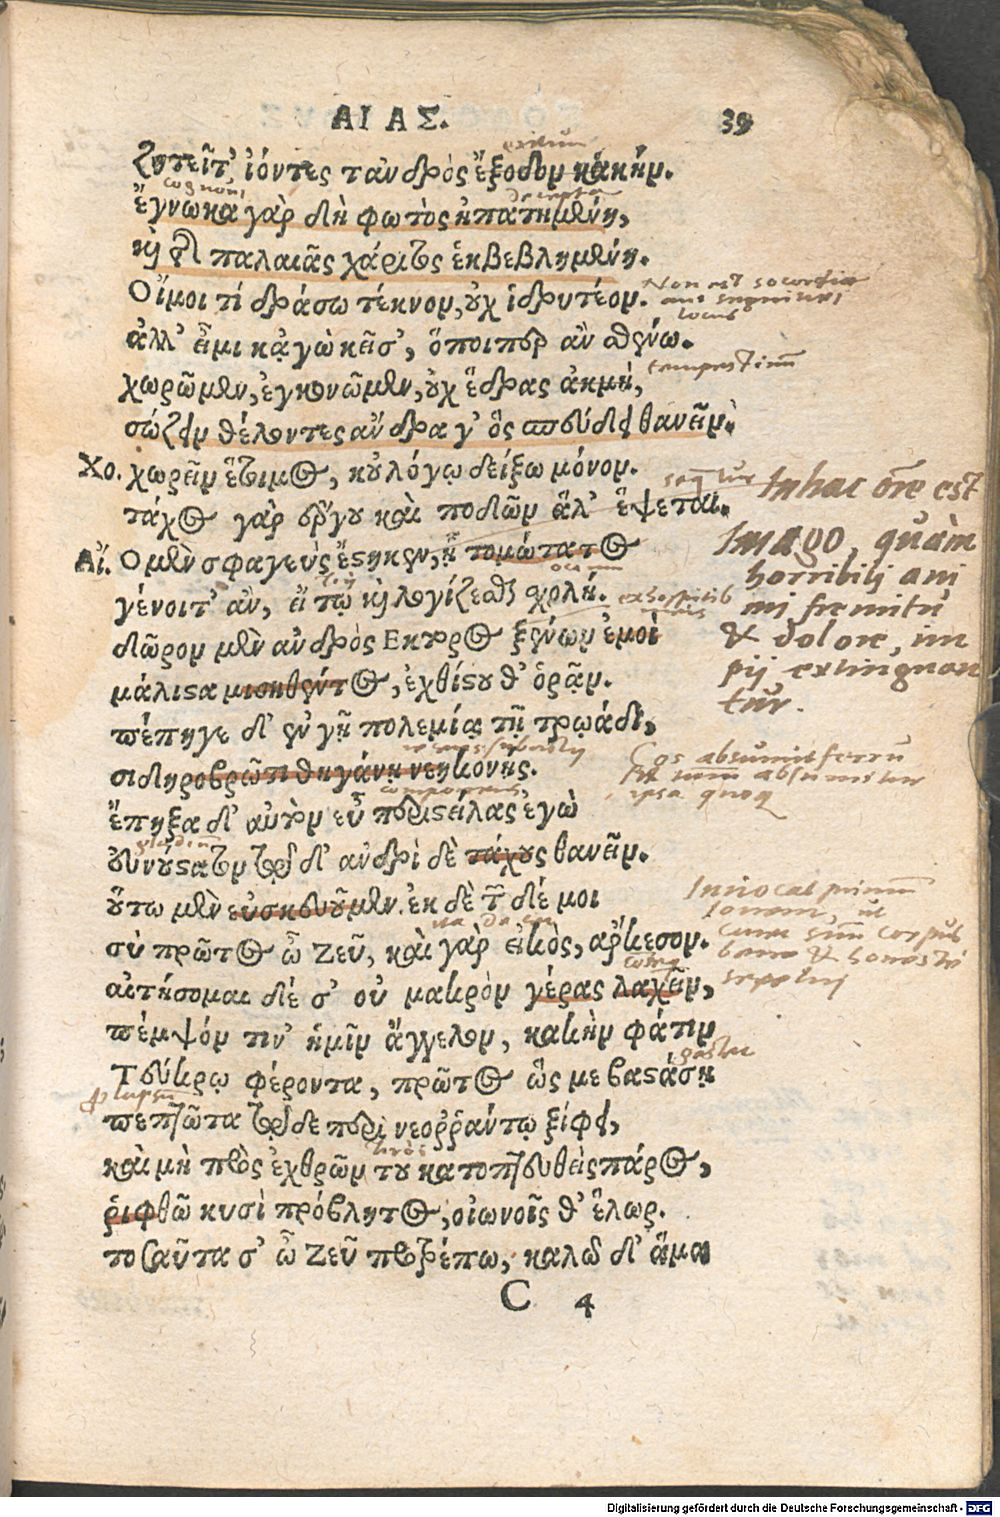 ΑΙΑΣ. 39
ζητεῖτ᾽, ἰόντες τἀνδρὸς ἔξοδον κακήν.
ἔγνωκα γὰρ δὴ φωτὸς ἠπατημένη,
καὶ τῆς παλαιᾶς χάριτος ἐκβεβλημένη.
Οἴμοι τί δράσω τέκνον, οὐχ ἱδρυτέον.
Non est socordiae
locus
ἀλλ᾽ εἶμι κἀγὼ κεῖσ᾽, ὅποιπερ ἂν σθένω.
χωρῶμεν, ἐγκονῶμεν, οὐχ ἕδρας ἀκμή,
σώζειν θέλοντες ἄνδρα γ᾽ ὃς σπεύδει θανεῖν.
Χο. χωρεῖν ἕτοιμος, κοὐ λόγῳ δείξω μόνον.
τάχος γὰρ ἔργου καὶ ποδῶν ἅμ᾽ ἕψεται.
Αἴ. Ο μὲν σφαγεὺς ἕστηκεν, ᾗ τομώτατος
γένοιτ᾽ ἂν, εἴ τῳ καὶ λογίζεσθαι σχολή.
δῶρον μὲν ἀνδρὸς Εκτορος ξένων ἐμοὶ
μάλιστα μισηθέντος, ἐχθίστου θ᾽ ὁρᾷν.
πέπηγε δ᾽ ἐν γῇ πολεμίᾳ τῇ τρῳάδι,
σιδηροβρῶτι θηγάνῃ νεηκονής.
ἔπηξα δ᾽ αὐτὸν εὖ περιστείλας ἐγὼ
εὐνούστατον τῷδ᾽ ἀνδρὶ δὲ τάχους θανεῖν.
οὕτω μὲν εὐσκευοῦμεν. ἐκ δὲ τῶνδέ μοι
σὺ πρῶτος ὦ Ζεῦ, καὶ γὰρ εἰκὸς, ἄρκεσον.
αἰτήσομαι δέ σ᾽ οὐ μακρὸν γέρας λαχεῖν,
πέμψόν τιν᾽ ἡμῖν ἄγγελον, κακὴν φάτιν
Τεύκρῳ φέροντα, πρῶτος ὥς με βαστάσῃ
πεπτῶτα τῷδε περὶ νεοῤῥάντῳ ξίφει,
καὶ μὴ πρὸς ἐχθρῶν του κατοπτευθεὶς πάρος,
ῥιφθῶ κυσὶ πρόβλητος, οἰωνοῖς θ᾽ ἕλωρ.
τοσαῦτα σ᾽ ὦ Ζεῦ προτρέπω, καλῶ δ᾽ ἅμα
C 4
In hac ore est
Imago, quàm
horribili ani
mi fremitu
& dolore, im
pij extingnan
tur.
Cos absumit ferrū
ipsa quoq
Inuocat primum
Iouem, ut
corpus
bene & honeste
sepeliri
Digitalisierung gefördert durch die Deutsche Forschungsgemeinschaft - DFG